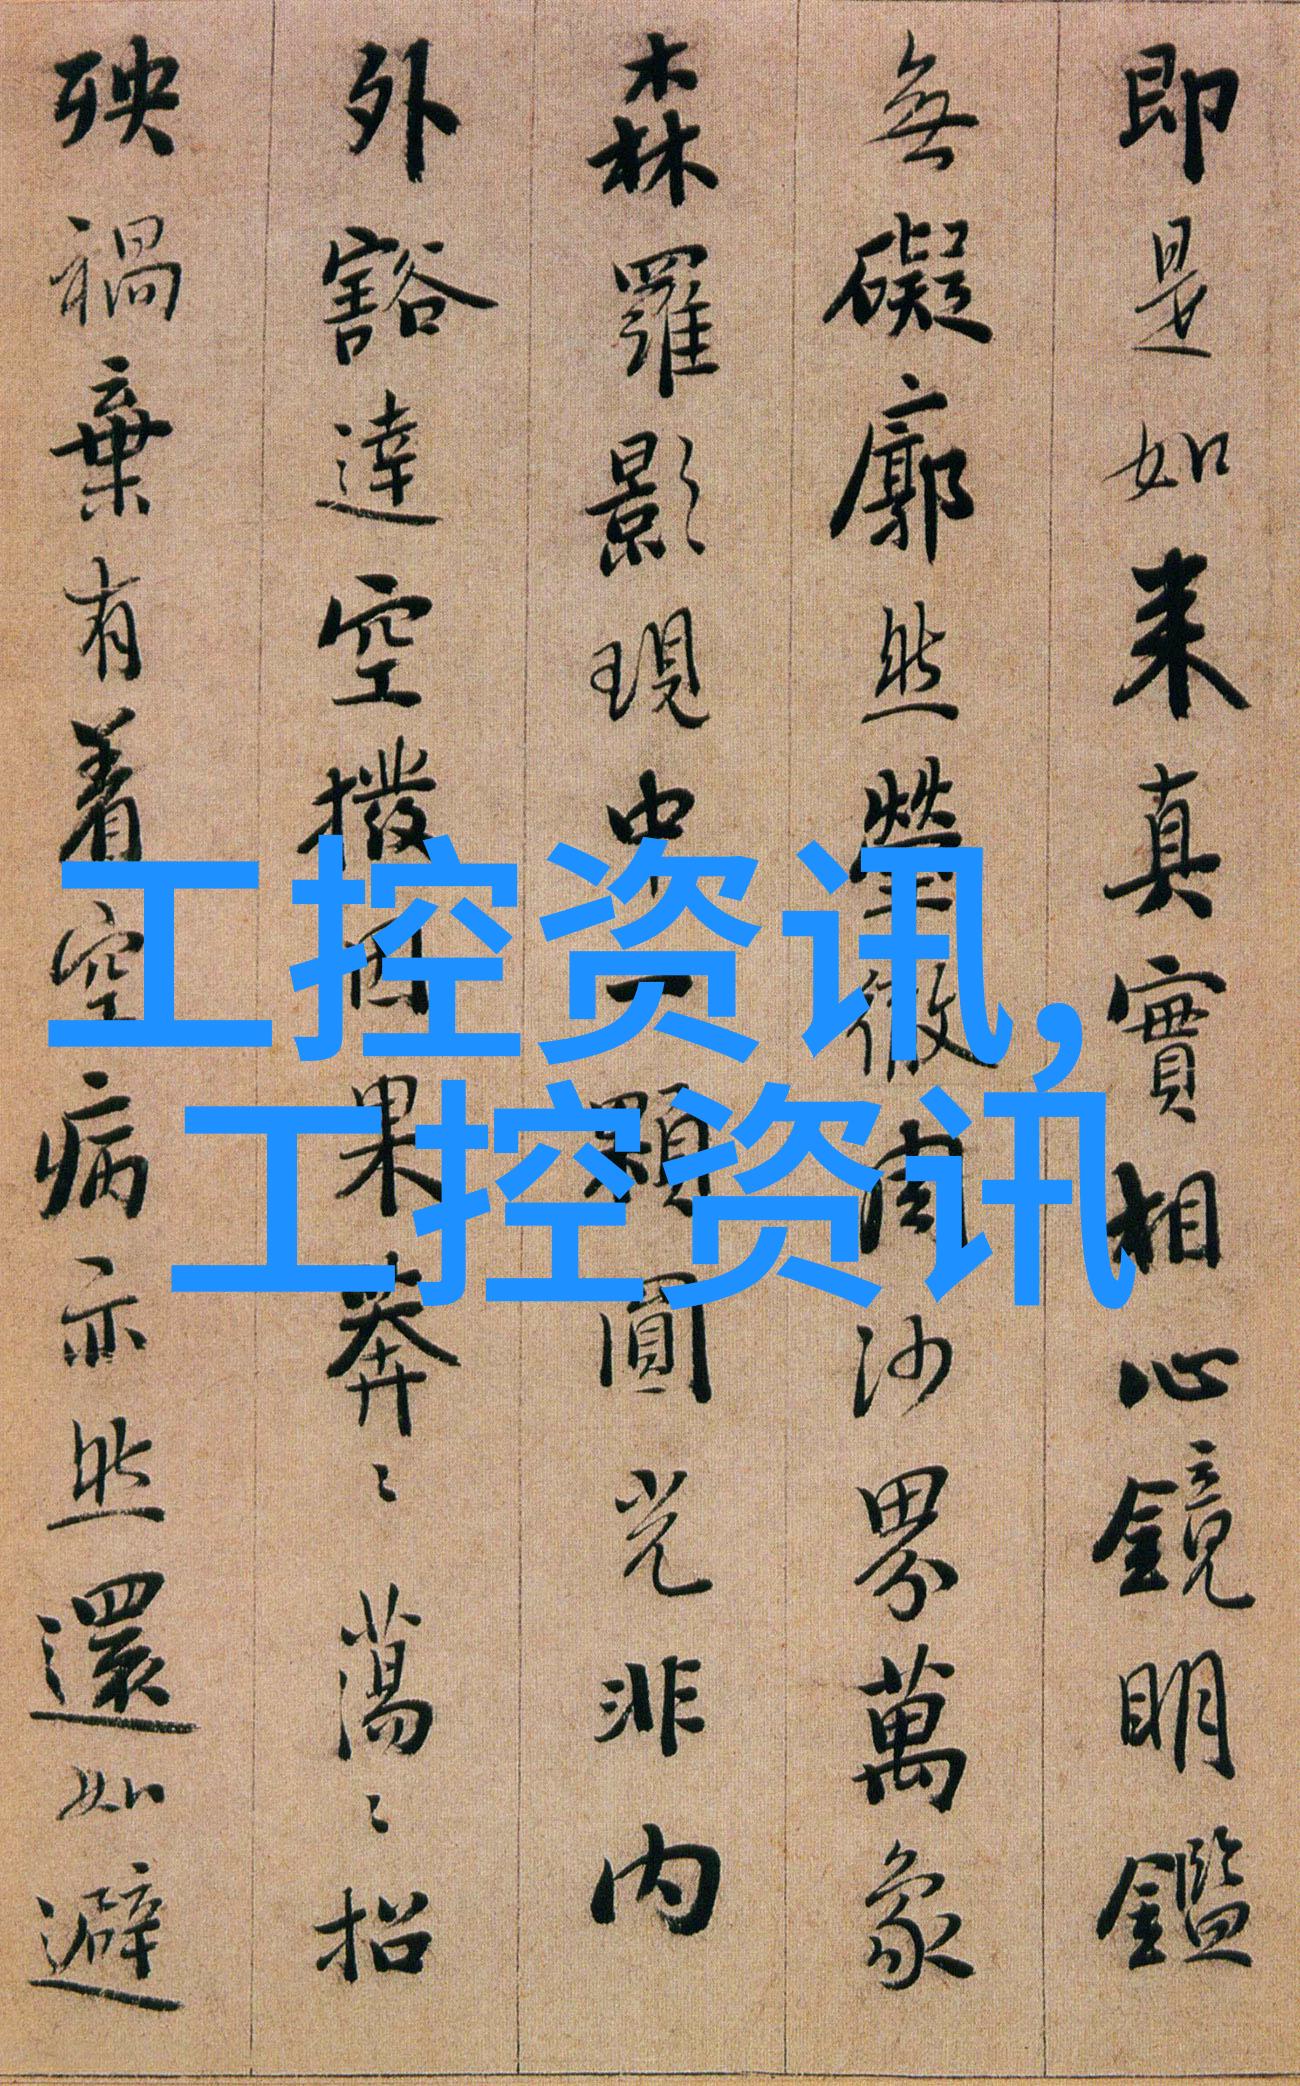 即是如来真實相心鏡明鑑
無礙廓然瑩徹周沙界萬象
森羅影現中一顆圓光非内
外豁達空撥因果莽〻蕩〻招
殃禍棄有着空病亦然還如避
工控资讯,
工控资讯